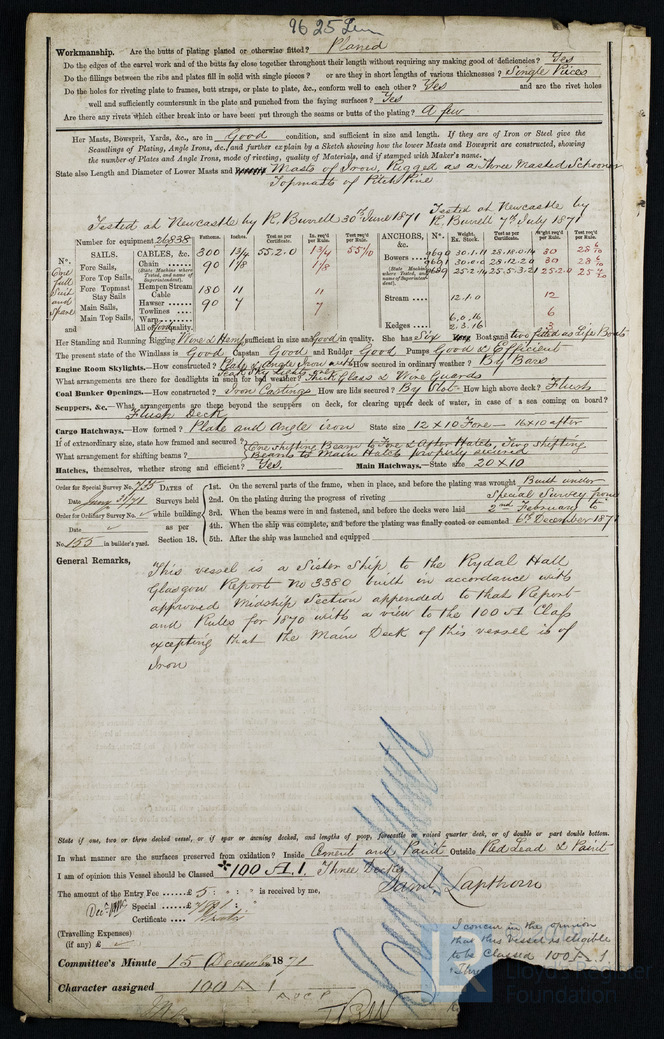 9625 Iron
Workmanship. Are the butts of plating planed or otherwise fitted? Planed
Do the edges of the carvel work and of the butts lay close together throughout their length without requiring any making good of deficiencies? Yes
Do the fillings between the ribs and plates fill in solid with single pieces? or are they in short lengths of various thicknesses? Single Pieces
Do the holes for riveting plate to frames, butt straps, or plate to plate, &c., conform well to each other? Yes and are the rivet holes
well and sufficiently countersunk in the plate and punched from the faying surfaces? Yes
Are there any rivets which either break into or have been put through the seams or butts of the plating? A few
Her Masts, Bowsprit, Yards, &c., are in Good condition, and sufficient in size and length. If they are of Iron or Steel give the
Scantlings of Plating, Angle Irons, &c., and further explain by a Sketch showing how the lower Masts and Bowsprit are constructed, showing
the number of Plates and Angle Irons, mode of riveting, quality of Materials, and if stamped with Maker's name.
State also Length and Diameter of Lower Masts and Masts of Iron, Rigged as a Three Masted Schooner
Topmasts of Pitch Pine
Tested at Newcastle by R. Burrell 30th June 1871 Tested at Newcastle by
R. Burrell 7th July 1871
Number for equipment 26,838 Fathoms. Inches. Test as per Certificate. In. req'd per Rule. Test req'd per Rule. ANCHORS, &c. Nos. Weight. Ex. Stock. Test as per Certificate. Wght req'd per Rule. Test req'd per Rule.
Nos. SAILS. CABLES, &c. 300 1 3/4 55.2.0 1 3/4 55 1/10 9690 30.1.11 28.18.0.14 30
One full Suit and Spare
Fore Sails, Chain 90 1 1/8 1 1/8 Bowers 9691 30.0.0 28.12.2.0 30
Fore Top Sails, (State Machine where Tested, and name of Superintendent). 9689 25.2.14 25.5.3.21 25.2.0
Fore Topmast Stay Sails Hempen Stream Cable 180 11 11 Stream 12.1.0 12
Main Sails, Hawser 90 7 7
Main Top Sails, Towlines 6.0.16 6
and Warp Kedges 2.3.16 3
All of Good quality.
Her Standing and Running Rigging Wire & Hemp sufficient in size and Good in quality. She has Six Boats and two fitted as Life Boats
The present state of the Windlass is Good Capstan Good and Rudder Good Pumps Good & Efficient
Engine Room Skylights.—How constructed? Plate & Angle Iron with Teak Sky Lights over How secured in ordinary weather? By Bars
What arrangements are there for deadlights in such for bad weather? Thick Glass & Wire Guards
Coal Bunker Openings.—How constructed? Iron Castings How are lids secured? By Slot How high above deck? Flush
Scuppers, &c.—What arrangements are there beyond the scuppers on deck, for clearing upper deck of water, in case of a sea coming on board?
Flush Deck
Cargo Hatchways.—How formed? Plate and Angle iron State size 12 x 10 Fore — 16 x 10 after
If of extraordinary size, state how framed and secured?
What arrangement for shifting beams? One shifting Beam to Fore & After Hatch, Two shifting Beams to Main Hatch properly secured
Hatches, themselves, whether strong and efficient? Yes. Main Hatchways.—State size 20 x 10
Order for Special Survey No. 755 DATES of Surveys held while building as per Section 18.
Date 31/71
Order for Ordinary Survey No.
Date
No. 155 in builder's yard.
1st. On the several parts of the frame, when in place, and before the plating was wrought Built under
2nd. On the plating during the progress of riveting Special Survey from
3rd. When the beams were in and fastened, and before the decks were laid 2nd February to
4th. When the ship was complete, and before the plating was finally coated or cemented 6th December 187
5th. After the ship was launched and equipped
General Remarks, This vessel is a Sister Ship to the Rydal Hall
Glasgow Report No 3380 built in accordance with
approved Midship Section appended to that Report
and Rules for 1870 with a view to the 100 A Class
excepting that the Main Deck of this vessel is of
Iron
State if one, two or three decked vessel, or if spar or awning decked, and lengths of poop, forecastle or raised quarter deck, or of double or part double bottom.
In what manner are the surfaces preserved from oxidation? Inside Cement and Paint Outside Red Lead & Paint
I am of opinion this Vessel should be Classed *100 A.1. Three Decks
The amount of the Entry Fee £5 : : is received by me, Saml Lapthorn
Special £
Certificate
(Travelling Expenses)
(if any) £
I concur in the opinion
that this Vessel is eligible
to be Classed 100 A 1
Committee's Minute 15 December 1871
Character assigned 100 A 1
Lloyd's Register
Foundation